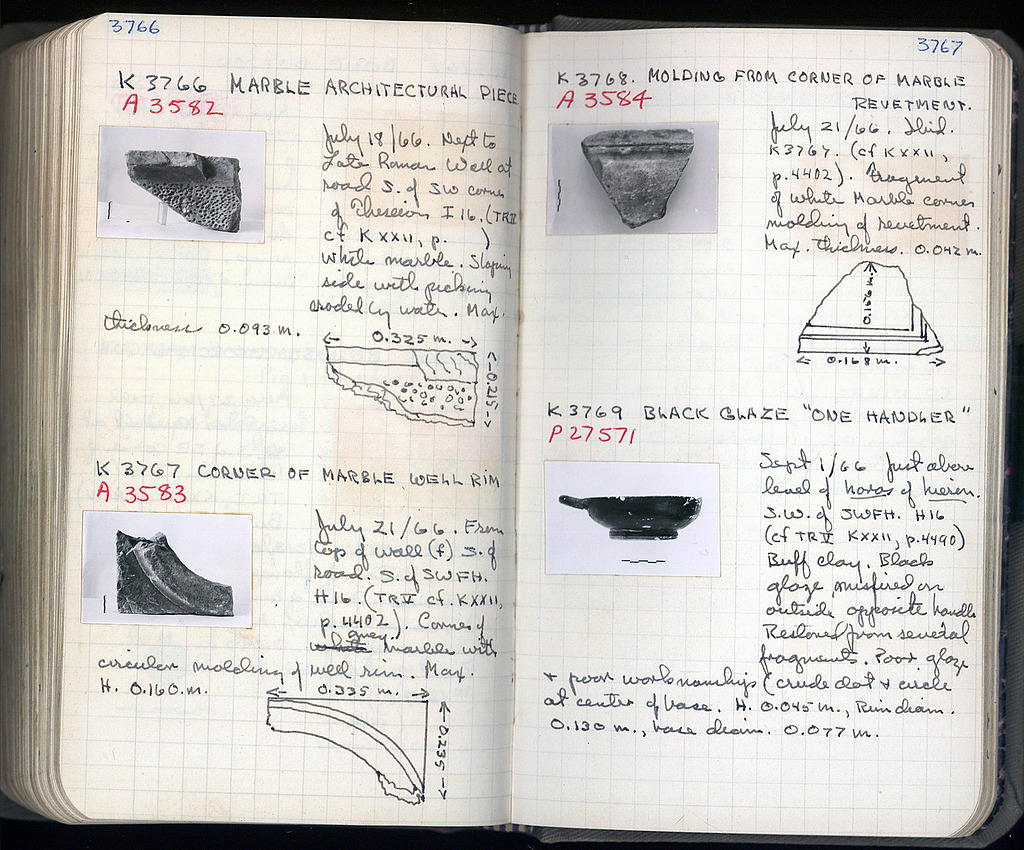 3766
K 3766 MARBLE ARCHITECTURAL PIECE
A 3582
July 18/66. Next to
Late Roman Wall at
road S. of SW corner
of Theseion I 16. (TR V
cf K XXII, p.    )
White marble. Sloping
side with picking
eroded by water. Max.
thickness 0.093 m.
0.325 m.
0.215
K 3767 CORNER OF MARBLE WELL RIM
A 3583
July 21/66. From
top of wall (f) S. of
road. S. of SWFH.
H 16. (TR V cf. K XXII,
p. 4402). Corner of
grey
white marble with
circular molding of well rim. Max.
H. 0.160 m.
0.335 m.
0.235
3767
K 3768. MOLDING FROM CORNER OF MARBLE
REVETMENT.
A 3584
July 21/66. Ibid.
K3767. (cf K XXII,
p. 4402). Fragment
of white Marble corner
molding of revetment.
Max. thickness. 0.042 m.
0.166 m.
0.168 m.
K 3769 BLACK GLAZE "ONE HANDLER"
P 27571
Sept 1/66 Just above
level of horos of hieron.
S.W. of SWFH. H16
(cf TR V KXXII, p.4490)
Buff clay. Black
glaze misfired on
outside opposite handle
Restored from several
fragments. Poor glaze
+ poor workmanship (crude dot + circle
at center of base. H. 0.045 m., Rim diam.
0.130 m., base diam. 0.077 m.